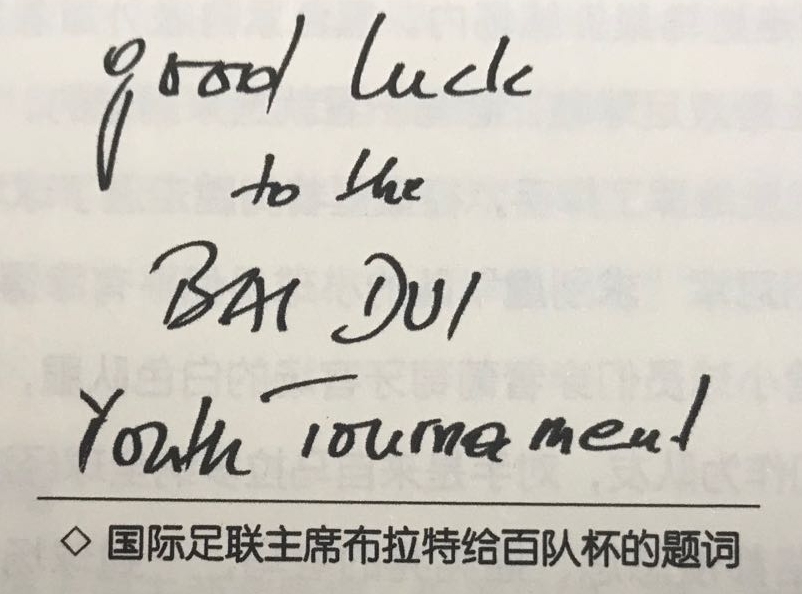 good luck
to the
BAI DUI
Youth Tournament
◇ 国际足联主席布拉特给百队杯的题词